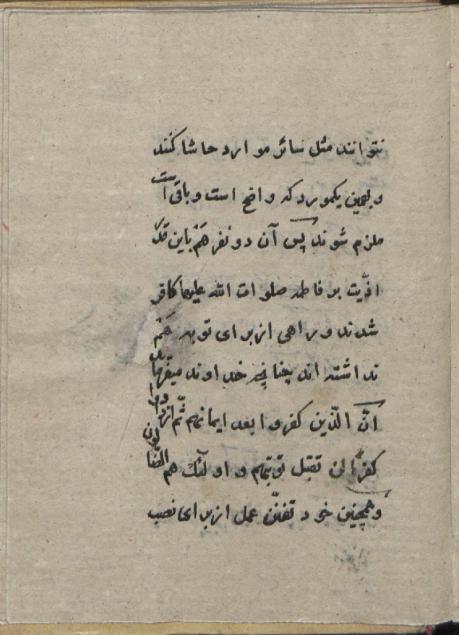 نتوانند مثل سائر موارد حاشا کنند
و بهمین یکمورد که واضح است و باقی است
ملزم شوند پس آن دو نفر هم باین قدر
اذیّت بر فاطمه صلوات الله علیها کافر
شدند و راهی از برای توبه هم
نداشته اند چنانچه خداوند میفرماید
انّ الّذین کفروا بعد ایمانهم ثمّ ازدادوا
کفرًا لن تقبل توبتهم و اولئک هم الضّالّون
و همچنین خود تفنّن عمل از برای نصب